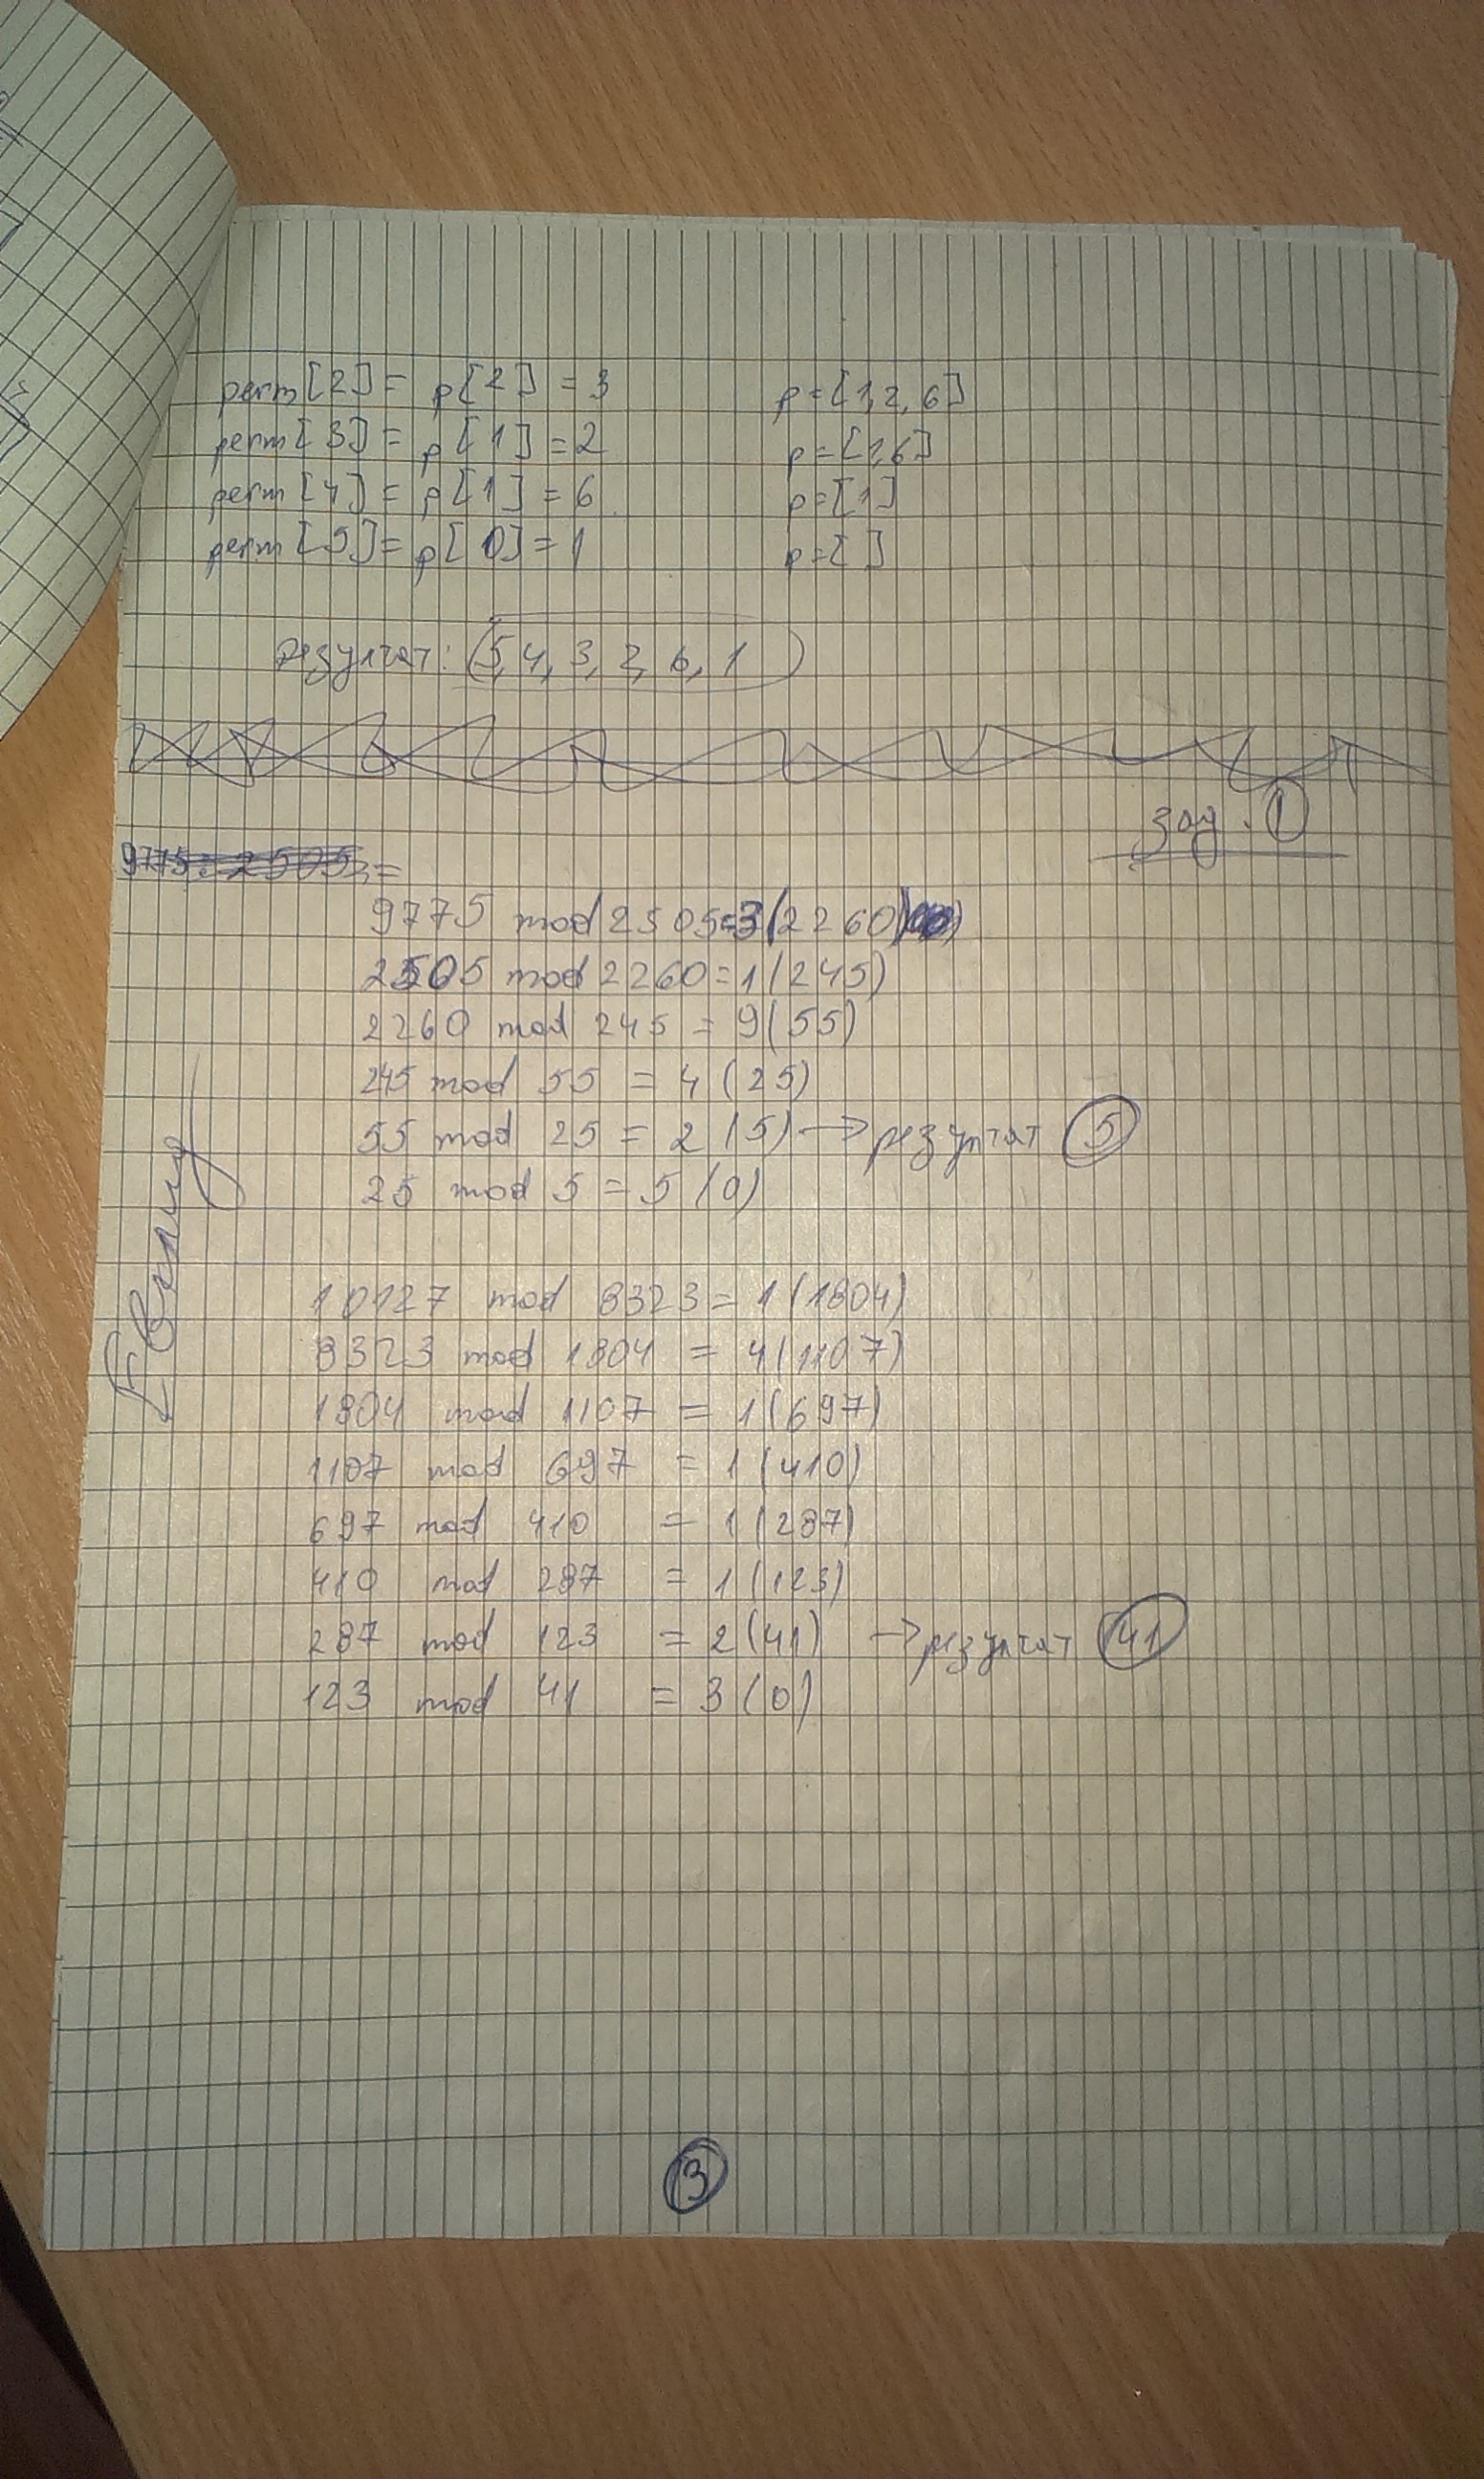 perm[2] = p[2] = 3 p=[1,2,6]
perm[3] = p[1] = 2 p=[1,6]
perm[4] = p[1] = 6 p=[1]
perm[5] = p[0] = 1 p=[ ]
резултат: (5, 4, 3, 2, 6, 1)
зад. 1
9775 mod 2505=3(2260)
2505 mod 2260=1(245)
2260 mod 245 = 9(55)
245 mod 55 = 4(25)
55 mod 25 = 2(5) → резултат 5
25 mod 5 = 5(0)
Евклид
10127 mod 8323=1(1804)
8323 mod 1804 = 4(1107)
1804 mod 1107 = 1(697)
1107 mod 697 = 1(410)
697 mod 410 = 1(287)
410 mod 287 = 1(123)
287 mod 123 = 2(41) → резултат 41
123 mod 41 = 3(0)
3